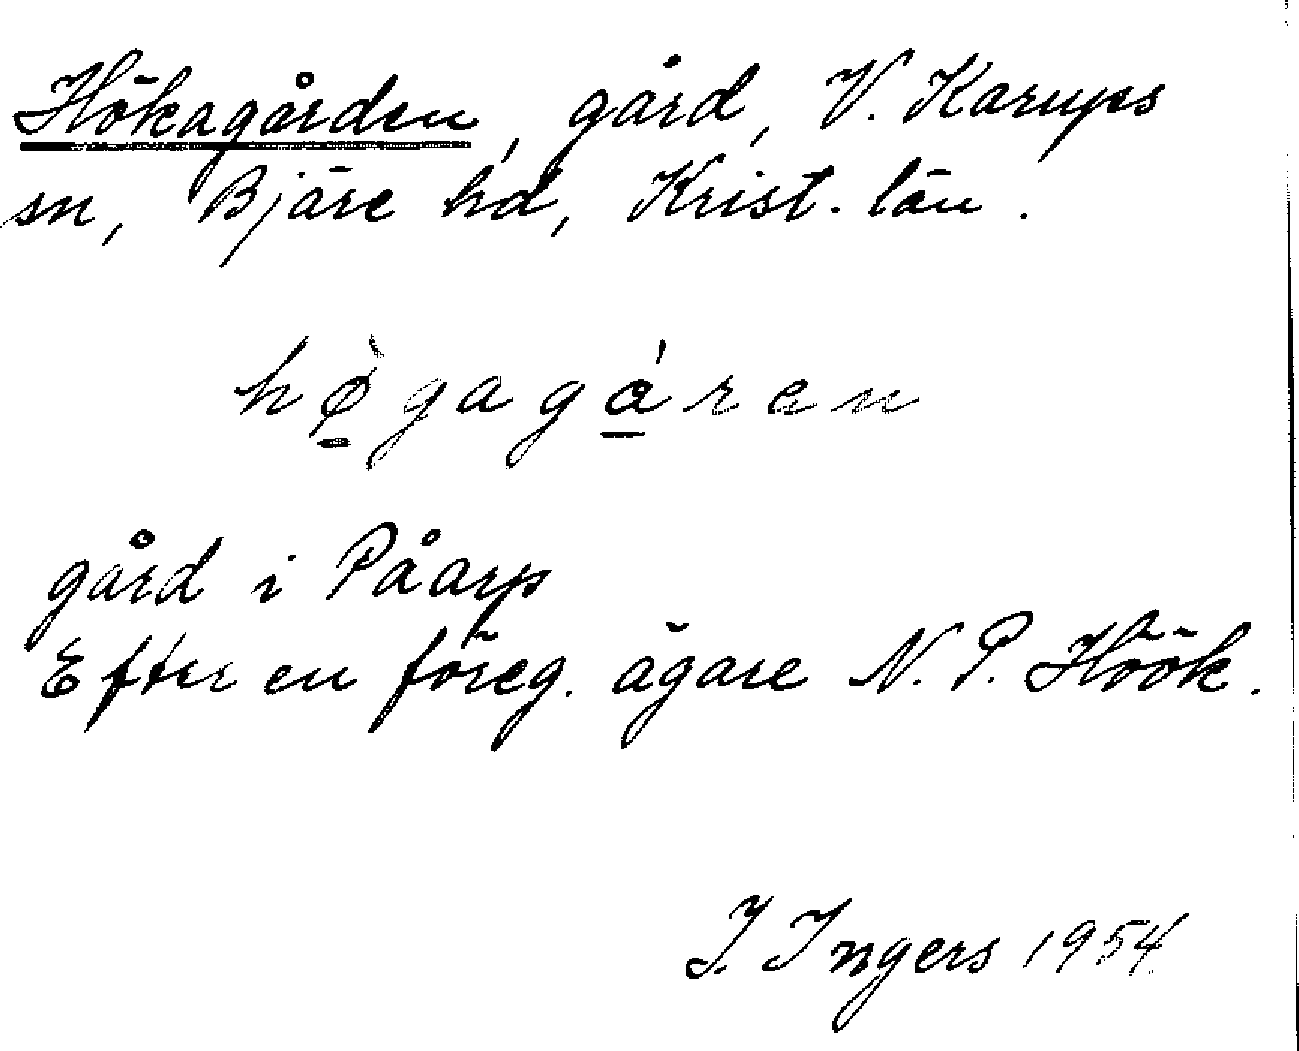 Hökagården, gård, V. Karups
sn, Bjäre hd, Krist. län.
hø̀gagáren
gård i Påarp
Efter en föreg. ägare N. P. Höök.
I. Ingers 1954